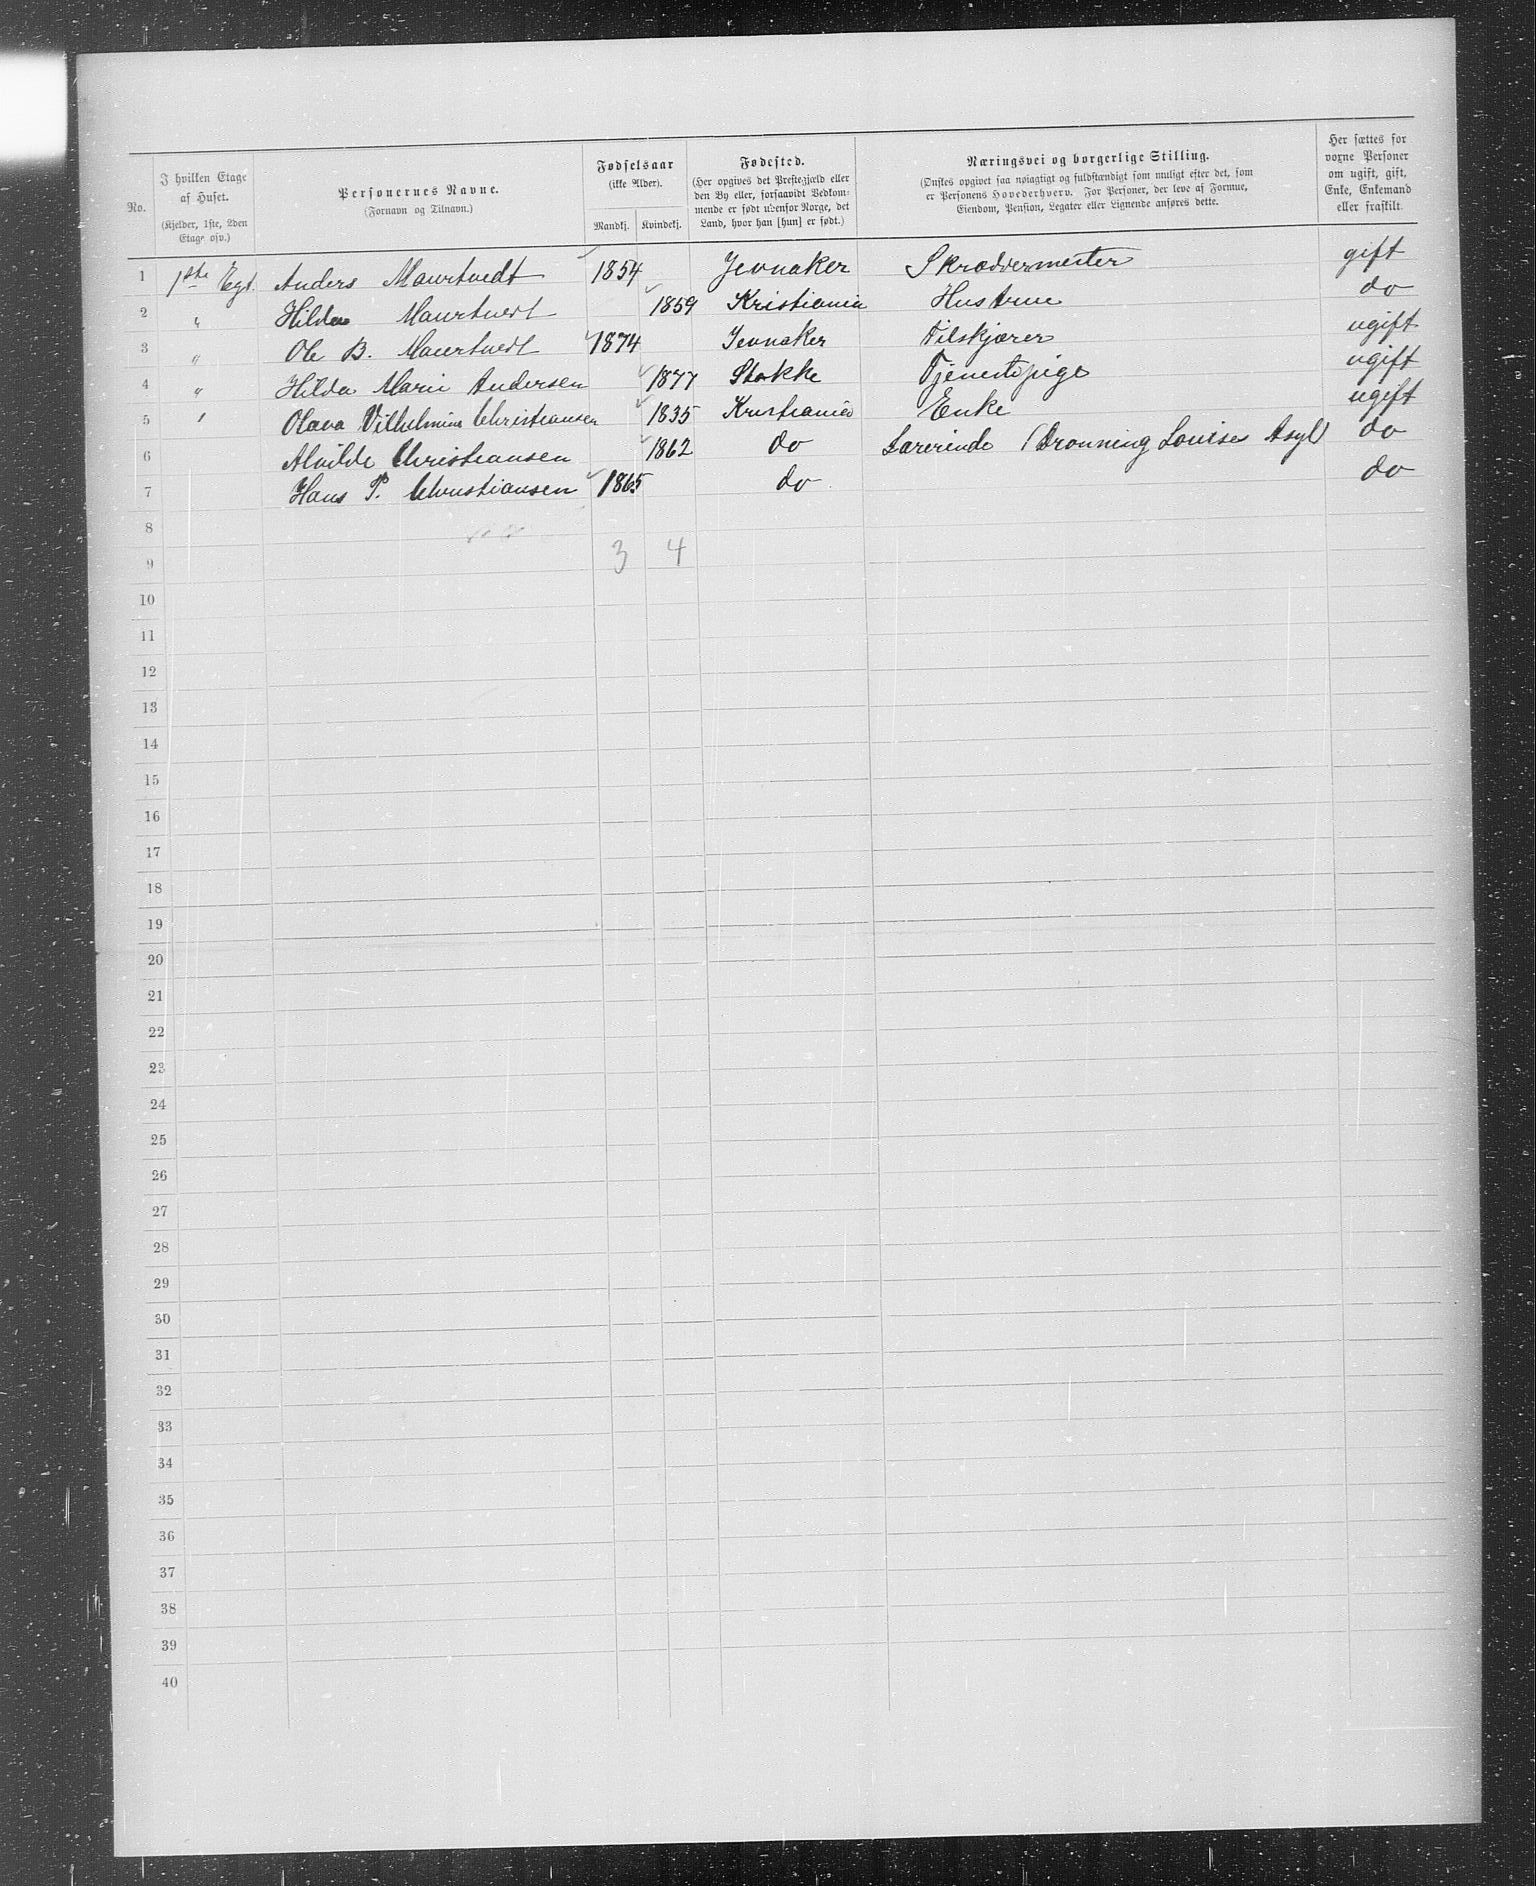 No. I hvilken Etage af Huset. (Kjelder, 1ste, 2den Etage osv.) Personernes Navne. (Fornavn og Tilnavn.) Fødselsaar (ikke Alder). Mandkj. Kvindekj. Fødested. (Her opgives det Præstegjæld eller den By eller, forsaavidt Vedkommende er født udenfor Norge, det Land, hvor han [hun] er født.) Næringsvei og borgerlige Stilling. (Ønskes opgivet saa nøiagtigt og fuldstændigt som muligt efter det, som er Personens Hovederhverv. For Personer, der leve af Formue, Eiendom, Pension, Legater eller Lignende anføres dette. Her sættes for voxne Personer om ugift, gift, Enke, Enkemand eller fraskilt.
1 1ste Etg. Anders Maurtvedt 1854 Jevnaker Skræddermester gift
2 " Hilda Maurtvedt 1859 Kristiania Hustrue do
3 " Ole B. Maurtvedt 1874 Jevnaker Tilskjærer ugift
4 " Hilda Marie Andersen 1877 Stokke Tjenestepige ugift
5 " Olava Vilhelmine Christiansen 1835 Kristiania Enke ugift
6 Alvilde Christiansen 1862 do Lærerinde (Dronning Louises Asyl) do
7 Hans P. Christiansen 1865 do do
8
9 3 4
10
11
12
13
14
15
16
17
18
19
20
21
22
23
24
25
26
27
28
29
30
31
32
33
34
35
36
37
38
39
40